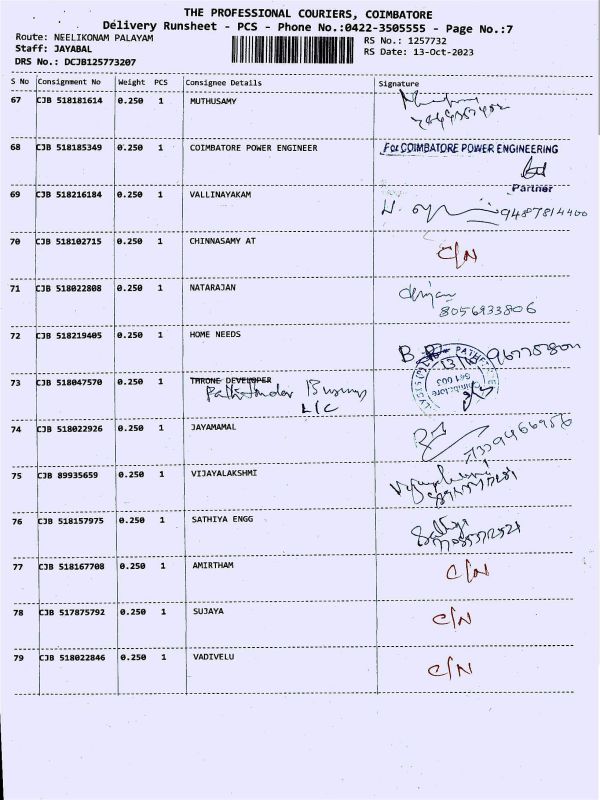 THE PROFESSIONAL COURIERS, COIMBATORE
Delivery Runsheet - PCS - Phone No.:0422-3505555 - Page No.:7
Route: NEELIKONAM PALAYAM
RS No.: 1257732
Staff: JAYABAL
RS Date: 13-Oct-2023
DRS No.: DCJB125773207
S No Consignment No Weight PCS Consignee Details Signature
67 CJB 518181614 0.250 1 MUTHUSAMY
68 CJB 518185349 0.250 1 COIMBATORE POWER ENGINEER For COIMBATORE POWER ENGINEERING
Partner
69 CJB 518216184 0.250 1 VALLINAYAKAM
9487814400
70 CJB 518102715 0.250 1 CHINNASAMY AT C/N
71 CJB 518022808 0.250 1 NATARAJAN
8056933806
72 CJB 518219405 0.250 1 HOME NEEDS
73 CJB 518047570 0.250 1 THRONE DEVELOPER
LLC
74 CJB 518022926 0.250 1 JAYAMAMAL
75 CJB 89935659 0.250 1 VIJAYALAKSHMI
76 CJB 518157975 0.250 1 SATHIYA ENGG
77 CJB 518167708 0.250 1 AMIRTHAM C/N
78 CJB 517875792 0.250 1 SUJAYA C/N
79 CJB 518022846 0.250 1 VADIVELU C/N